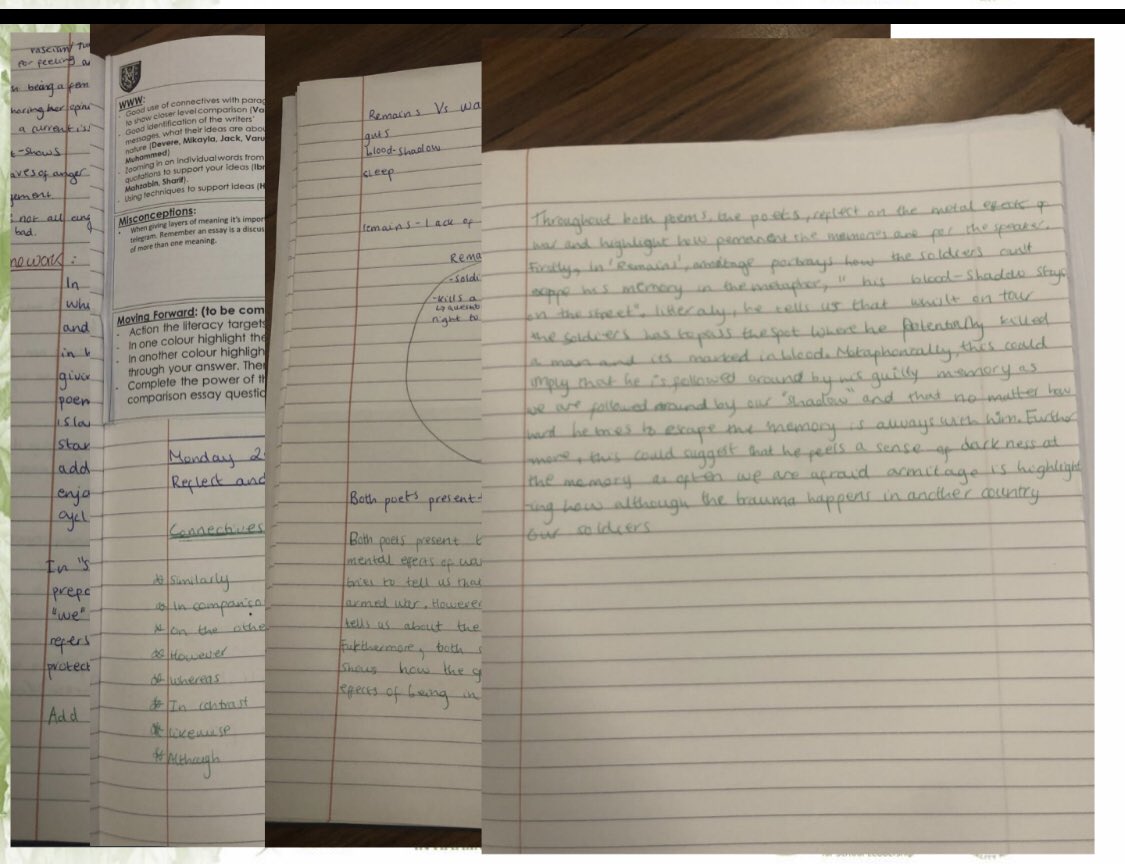 for feeling
being a fem
having her opin
a current is
- shows
aves of anger
gement.
not all
bad.
work :
In
whi
and
in
give
poem
isla
star
add
enjo
cycl
In "s
prepo
"we"
refers
protect
Add
WWW:
- Good use of connectives with parag
to show closer level comparison (Va
- Good identification of the writers'
messages, what their ideas are abou
nature (Devere, Mikayla, Jack, Varu
Muhammed)
- Zooming in on individual words from
quotations to support your ideas (Ibr
Mahzabin, Sharif).
- Using techniques to support ideas (H
Misconceptions:
- When giving layers of meaning it's impor
telegram. Remember an essay is a discus
of more than one meaning.
Moving Forward: (to be com
- Action the literacy targets
- In one colour highlight the
- In another colour highligh
through your answer. Then
- Complete the power of th
comparison essay questio
Monday 2
Reflect and
Connectives
Similarly
In comparison
On the othe
However
whereas
In contrast
Likewise
Although
Remains Vs Wa
guts
blood-shadow
sleep
remains - Lack of
Rema
-soldi
-kills a
right to
Both poets present
Both poets present
mental efects of wa
tries to tell us that
armed war. However
tells us about the
Furthermore, both s
shows how the g
efects of being in
Throughout both poems, the poets, reflect on the metal efects of
war and highlight how permenent the memories are for the speaker.
Firstly, in 'Remains', armitage portrays how the soldiers cant
escape his memory in the metaphor, " his blood-shadow stays
on the street". litteraly, he tells us that whilt on tour
the soldiers has to pass the spot where he potentially killed
a man and its marked in blood. Metaphorically, this could
imply that he is followed around by his guilty memory as
we are followed around by our "shadow" and that no matter how
hard he tries to escape the memory is always with him. Further
more, this could suggest that he feels a sense of darkness at
the memory as often we are afraid armitage is highlight
-ing how although the trauma happens in another country
our soldiers